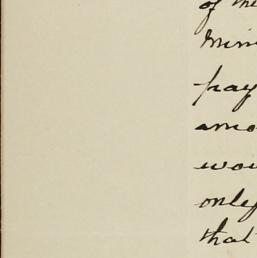 of the
Min
pay
amo
wou
only
that